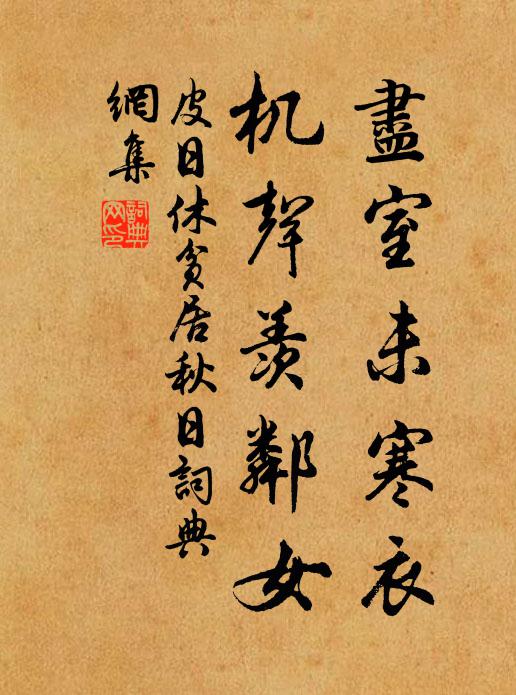 盡室未寒衣
机聲羨鄰女
皮日休貧居秋日詞典
網集
詞典网印